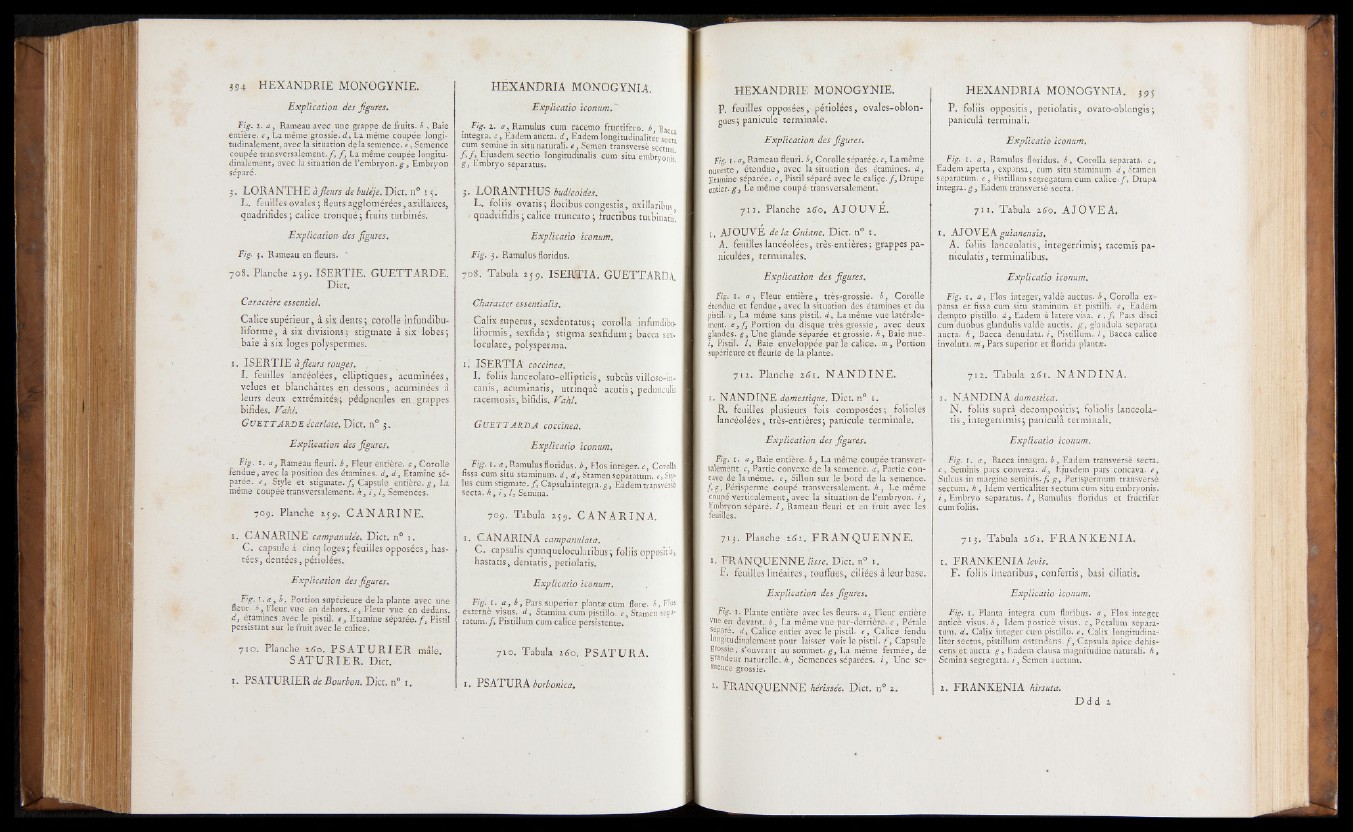 394 HEXANDRIE MONOGYNIE.
Explication des figures.
Fig. 2. a, Rameau avec une grappe de fruits. b, Baie
entière. c, La même grossie. d, La même coupée longi-
tudinalement, avec la situation de la semence. e, Semence
coupée transversalement. f, f, La même coupée longitu-
dinalement, avec la situation de l'embryon. g, Embryon
séparé.
3. LORANTHE à fleurs de buleje. Dict. n° 15.
L. feuilles ovales; fleurs agglomérées, axillaires,
quadrifides; calice tronqué; fruits turbinés.
Explication des figures.
Fig. 3. Rameau en fleurs.
708. Planche 259. ISERTIE. GUETTARDE.
Dict.
Caractère essentiel.
Calice supérieur, à six dents; corolle infundibu-
liforme, à six divisions; stigmate à six lobes;
baie à six loges polyspermes.
1. ISERTIE à fleurs rouges.
I. feuilles lancéolées, elliptiques, acuminées,
velues et blanchâtres en dessous, acuminées à
leurs deux extrémités; pédoncules en grappes
bifides. Vahl.
GUETTARDE écarlate. Dict. n° 3.
Explication des figures.
Fig. 1. a, Rameau fleuri. b, Fleur entière. c, Corolle
fendue, avec la position des étamines. d, d, Etamine sé-
parée. e, Style et stigmate. f, Capsule entière. g, La
même coupée transversalement. h, i, l, Semences.
709. Planche 259. CANARINE.
1. CANARINE campanulée. Dict. n° 1.
C. capsule à cinq loges; feuilles opposées, has-
tées, dentées, pétiolées.
Explication des figures.
Fig. 1. a, b, Portion supérieure de la plante avec une
fleur b, Fleur vue en dehors. c, Fleur vue en dedans.
d, étamines avec le pistil. e, Etamine séparée. f, Pistil
persistant sur le fruit avec le calice.
710. Planche 260. PSATURIER mâle.
SATURIER. Dict.
1. PSATURIER de Bourbon. Dict. n° 1.
HEXANDRIA MONOGYNIA.
Explicatio iconum.
Fig. 2. a, Ramulus cum racemo fructifero. b, Bacca
integra. c, Eadem aucta. d, Eadem longitudinaliter secta
cum semine in situ naturali. e, Semen transversè sectum.
f, f, Ejusdem sectio longitudinalis cum situ embryonis.
g, Embryo separatus.
3. LORANTHUS budleoides.
L. foliis ovatis; floribus congestis, axillaribus,
quadrifidis; calice truncato; fructibus turbinatis.
Explicatio iconum.
Fig. 3. Ramulus floridus.
708. Tabula 259. ISERTIA. GUETTARDA.
Character essentialis.
Calix superus, sexdentatus; corolla infundibu-
liformis, sexfida; stigma sexfidum; bacca sex-
loculare, polysperma.
1. ISERTIA coccinea.
I. foliis lanceolato-ellipticis, subtùs villoso-in-
canis, acuminatis, utrinquè acutis; pedunculis
racemosis, bifidis. Vahl.
GUETTARDA coccinea.
Explicatio iconum.
Fig. 1. a, Ramulus floridus. b, Flos integer. c, Corolla
fissa cum situ staminum. d, d, Stamen separatum. e, Sty-
lus cum stigmate. f, Capsula integra. g, Eadem transversè
secta. h, i, l, Semina.
709. Tabula 259. CANARINA.
1. CANARINA campanulata.
C. capsulis quinquelocularibus; foliis oppositis,
hastatis, dentatis, petiolatis.
Explicatio iconum.
Fig. 1. a, b, Pars superior plantæ cum flore. b, Flos
externè visus. d, Stamina cum pistillo. e, Stamen sepa-
ratum. f, Pistillum cum calice persistente.
710. Tabula 260. PSATURA.
1. PSATURA borbonica.
HEXANDRIE MONOGYNIE.
P. feuilles opposées, pétiolées, ovales-oblon-
gues; panicule terminale.
Explication des figures.
Fig. 1. a, Rameau fleuri. b, Corolle séparée. c, La même
ouverte, étendue, avec la situation des étamines. d,
Etamine séparée. e, Pistil séparé avec le calice. f, Drupe
entier. g, Le même coupé transversalement.
711. Planche 260. AJOUVÉ.
1. AJOUVÉ de la Guiane. Dict. n° 1.
A. feuilles lancéolées, très-entières; grappes pa-
niculées, terminales.
Explication des figures.
Fig. 1. a, Fleur entière, très-grossie. b, Corolle
étendue et fendue, avec la situation des étamines et du
pistil. c, La même sans pistil. d, La même vue latérale-
ment. e, f, Portion du disque très grossie, avec deux
glandes. g, Une glande séparée et grossie. h, Baie nue.
i, Pistil. l, Baie enveloppée par le calice. m, Portion
supérieure et fleurie de la plante.
712. Planche 261. NANDINE.
1. NANDINE domestique. Dict. n° 1.
R. feuilles plusieurs fois composées; folioles
lancéolées, très-entières; panicule terminale.
Explication des figures.
Fig. 1. a, Baie entière. b, La même coupée transver-
salement. c, Partie convexe de la semence. d, Partie con-
cave de la même. e, Sillon sur le bord de la semence.
f, g, Périsperme coupé transversalement. h, Le même
coupé verticalement, avec la situation de l'embryon. i,
Embryon séparé. l, Rameau fleuri et en fruit avec les
feuilles.
713. Planche 262. FRANQUENNE.
1. FRANQUENNE lisse. Dict. n° 1.
F. feuilles linéaires, touffues, ciliées à leur base.
Explication des figures.
Fig. 1. Plante entière avec les fleurs. a, Fleur entière
vue en devant. b, La même vue par-derrière. c, Pétale
séparé. d, Calice entier avec le pistil. e, Calice fendu
longitudinalement pour laisser voir le pistil. f, Capsule
grossie, s'ouvrant au sommet. g, La même fermée, de
grandeur naturelle. h, Semences séparées. i, Une se-
mence grossie.
2. FRANQUENNE hérissée. Dict. n° 2.
HEXANDRIA MONOGYNIA. 395
P. foliis oppositis, petiolatis, ovato-oblongis;
paniculâ terminali.
Explicatio iconum.
Fig. 1. a, Ramulus floridus. b, Corolla separata. c,
Eadem aperta, expansa, cum situ staminum d, Stamen
separatum. e, Pistillum segregatum cum calice. f, Drupa
integra. g, Eadem transversè secta.
711. Tabula 260. AJOVEA.
1. AJOVEA guianensis.
A. foliis lanceolatis, integerrimis; racemis pa-
niculatis, terminalibus.
Explicatio iconum.
Fig. 1. a, Flos integer, valdè auctus. b, Corolla ex-
pansa et fissa cum situ staminum et pistilli. c, Eadem
dempto pistillo. d, Eadem à latere visa. e, f, Pars disci
cum duobus glandulis valdè auctis. g, glandula separata
aucta. h, Bacca denudata. i, Pistillum. l, Bacca calice
involuta. m, Pars superior et florida plantæ.
712. Tabula 261. NANDINA.
1. NANDINA domestica.
N. foliis suprà decompositis; foliolis lanceola-
tis, integerrimis; paniculâ terminali.
Explicatio iconum.
Fig. 1. a, Bacca integra. b, Eadem transversè secta.
c, Seminis pars convexa. d, Ejusdem pars concava. e,
Sulcus in margine seminis. f, g, Perispermum transversè
sectum. h, Idem verticaliter sectum cum situ embryonis.
i, Embryo separatus. l, Ramulus floridus et fructifer
cum foliis.
713. Tabula 262. FRANKENIA.
1. FRANKENIA levis.
F. foliis linearibus, confertis, basi ciliatis.
Explicatio iconum.
Fig. 1. Planta integra cum floribus. a, Flos integer
anticè visus. b, Idem posticè visus. c, Petalum separa-
tum. d, Calix integer cum pistillo. e, Calix longitudina-
liter sectus, pistillum ostendens. f, Capsula apice dehis-
cens et aucta. g, Eadem clausa magnitudine naturali. h,
Semina segregata. i, Semen auctum.
2. FRANKENIA hirsuta.
Ddd 2